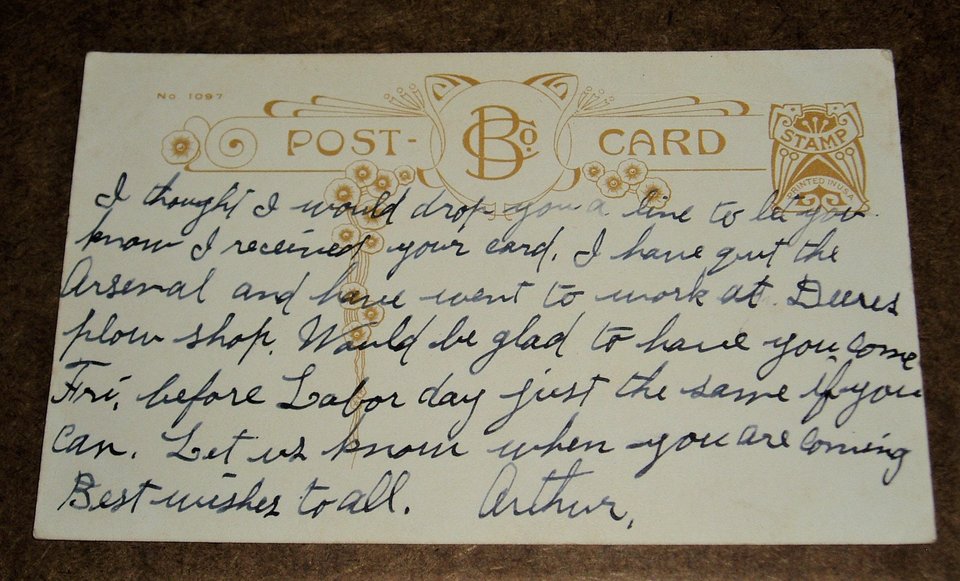 No. 1097
POST-CARD
BCo.
STAMP
PRINTED IN U.S.A.
I thought I would drop you a line to let you
know I received your card. I have quit the
Arsenal and have went to work at Deeres
plow shop. Would be glad to have you come
Fri. before Labor day just the same if you
can. Let us know when you are coming
Best wishes to all. Arthur.